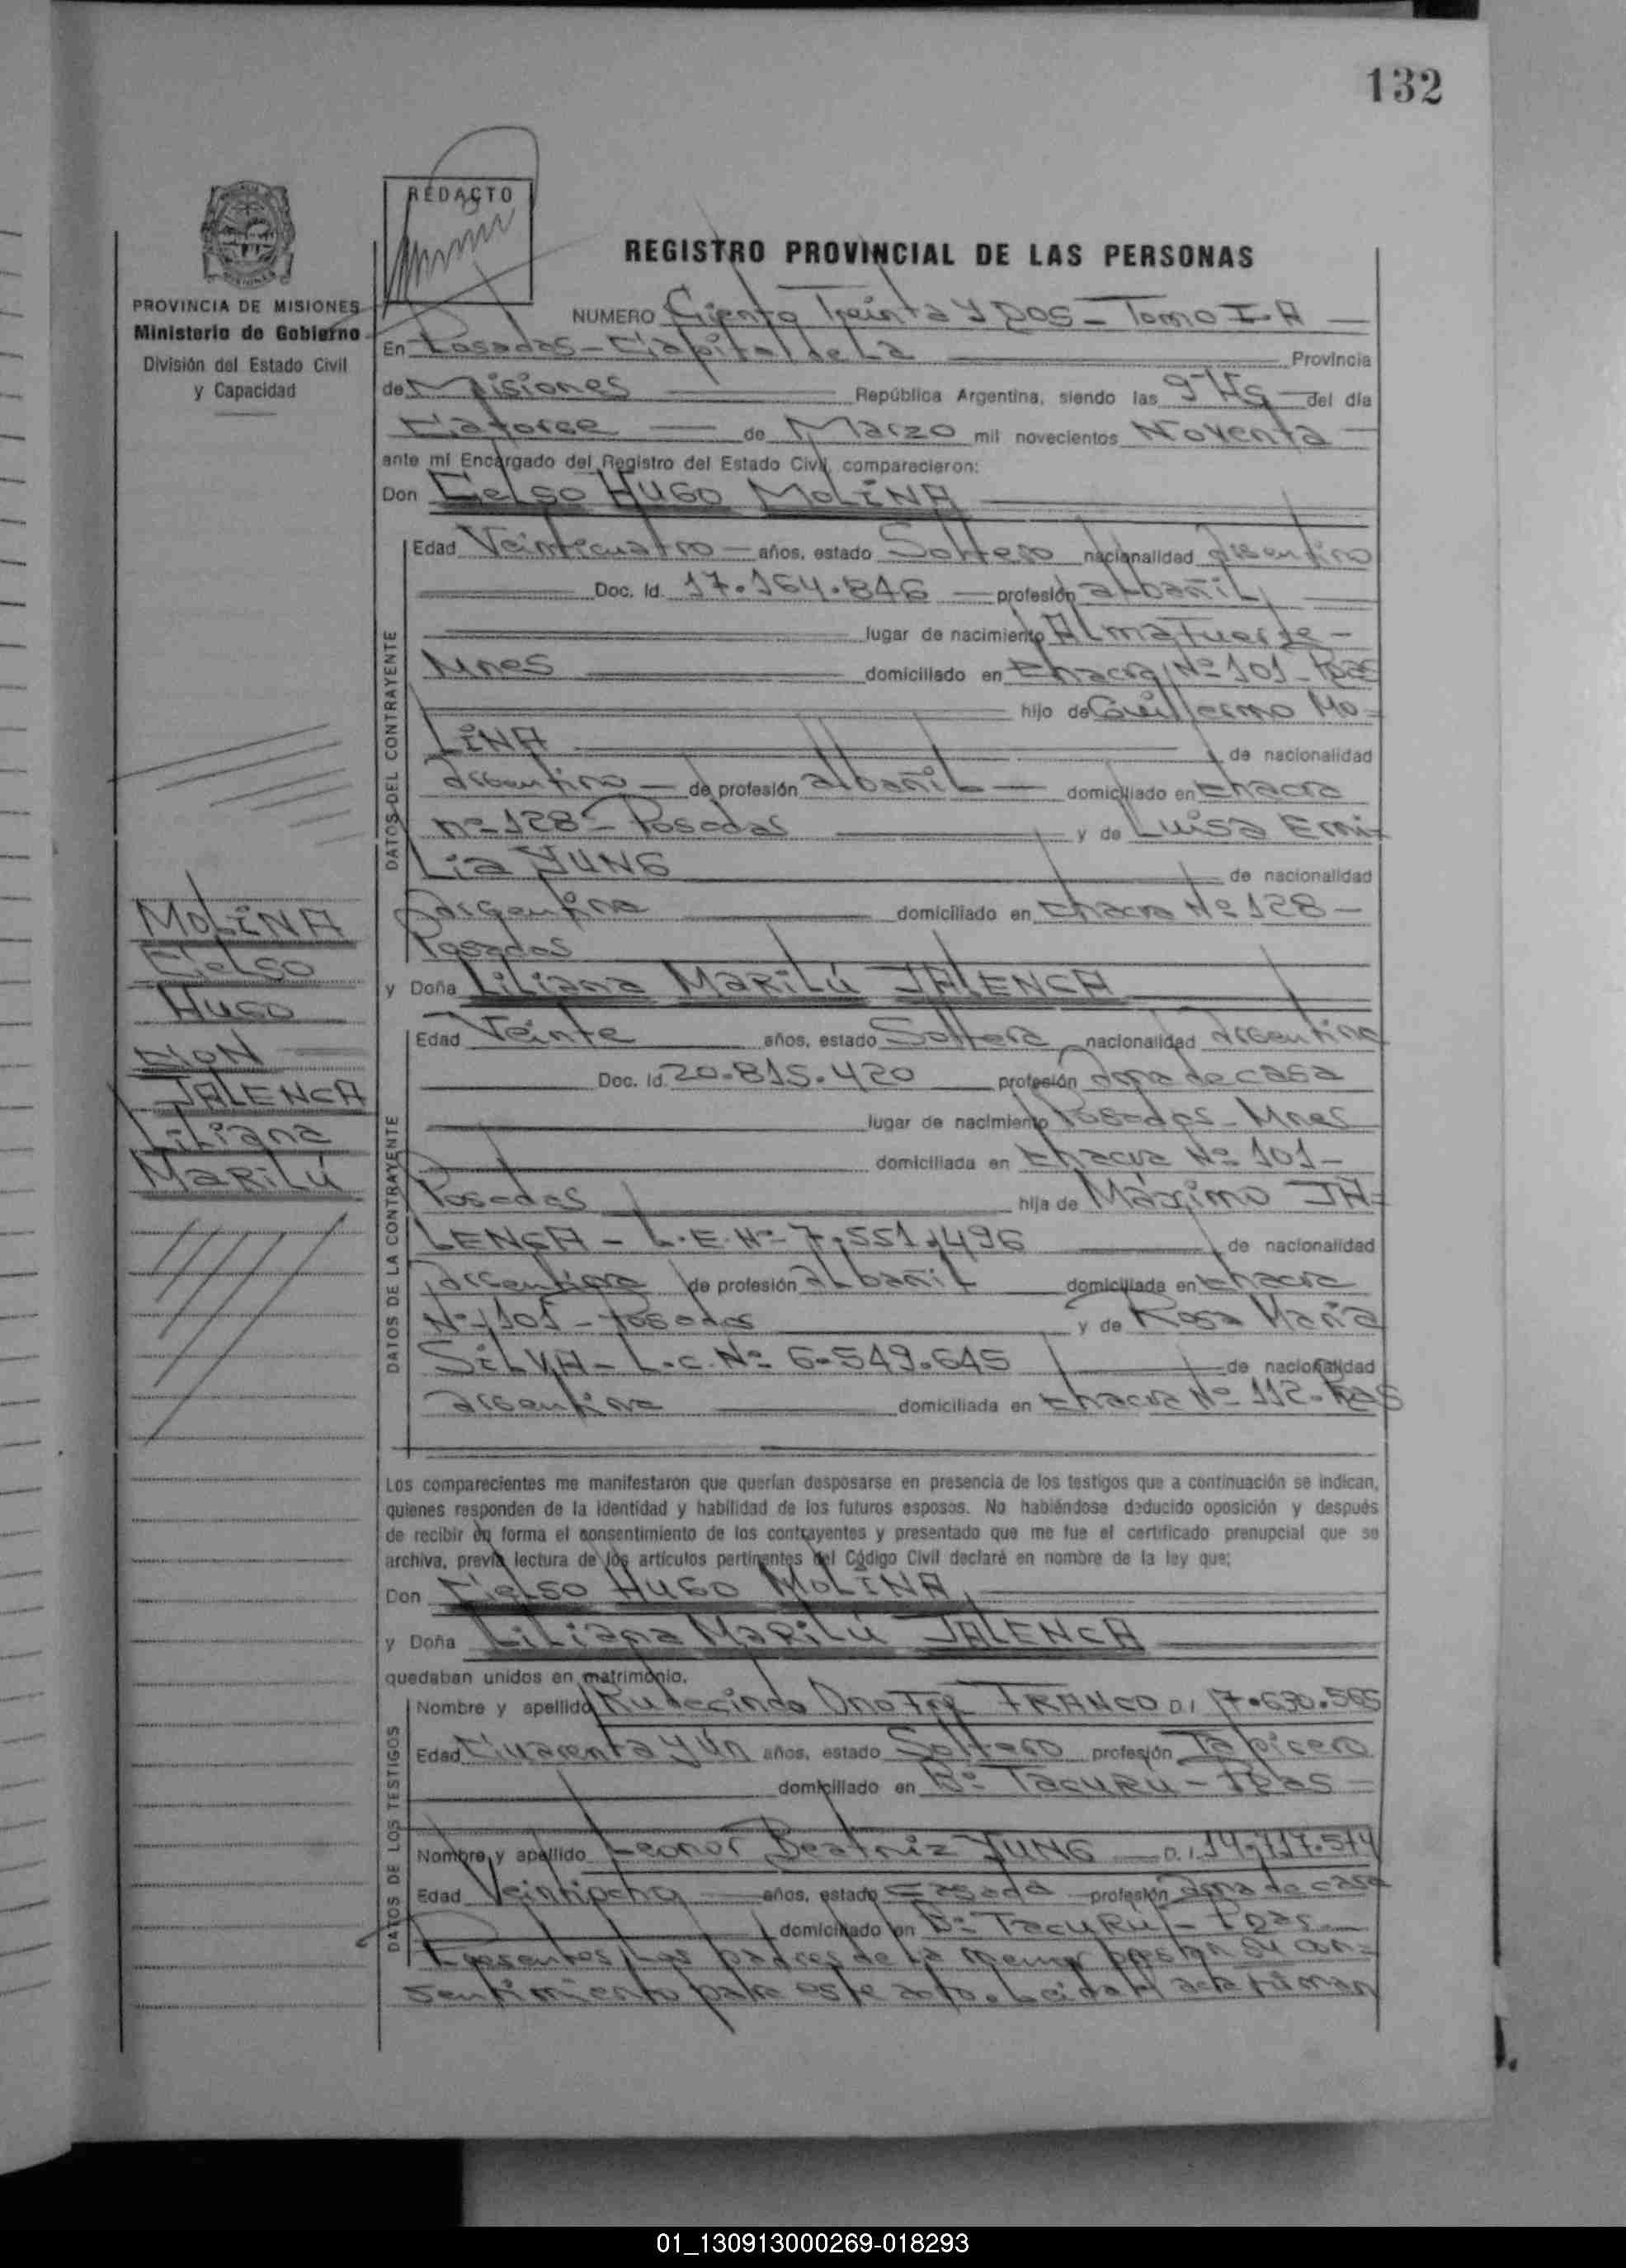 132
REDACTO
REGISTRO PROVINCIAL DE LAS PERSONAS
PROVINCIA DE MISIONES
Ministerio de Gobierno
División del Estado Civil
y Capacidad
NUMERO Ciento Treinta Y DOS - Tomo I-A
En Posadas - Capital de La Provincia
de Misiones República Argentina, siendo las 9 Hs del día
Catorce de Marzo mil novecientos Noventa
ante mí Encargado del Registro del Estado Civil, comparecieron:
Don Celso HUGO MOLINA
DATOS DEL CONTRAYENTE
Edad Veinticuatro años, estado Soltero nacionalidad argentino
Doc. Id. 17.164.846 profesión albañil
lugar de nacimiento Almafuerte -
Mnes domiciliado en Chacra Nº 101 - Pdas
hijo de Guillermo MO=
LINA de nacionalidad
argentino de profesión albañil domiciliado en Chacra
nº 128 - Posadas y de Luisa Emi=
Lia JUNG de nacionalidad
argentina domiciliado en Chacra Nº 128 -
Posadas
y Doña Liliana MARILÚ JALENCA
DATOS DE LA CONTRAYENTE
Edad Veinte años, estado Soltera nacionalidad argentina
Doc. Id. 20.815.420 profesión ama de casa
lugar de nacimiento Posadas - Mnes
domiciliada en Chacra Nº 101 -
Posadas hija de Máximo JA=
LENCA - L.E. Nº 7.551.496 de nacionalidad
argentina de profesión albañil domiciliada en Chacra
Nº 101 - Posadas y de Rosa María
SILVA - L.C. Nº 6.549.645 de nacionalidad
argentina domiciliada en Chacra Nº 112 - Pdas
MOLINA
Celso
HUGO
CON
JALENCA
Liliana
MARILÚ
Los comparecientes me manifestaron que querían desposarse en presencia de los testigos que a continuación se indican,
quienes responden de la identidad y habilidad de los futuros esposos. No habiéndose deducido oposición y después
de recibir en forma el consentimiento de los contrayentes y presentado que me fue el certificado prenupcial que se
archiva, previa lectura de los artículos pertinentes del Código Civil declaré en nombre de la ley que;
Don Celso HUGO MOLINA
y Doña Liliana MARILÚ JALENCA
quedaban unidos en matrimonio.
DATOS DE LOS TESTIGOS
Nombre y apellido Rudecindo FRANCO D.I 7.630.565
Edad Cuarenta y Un años, estado Soltero profesión Tapicero
domiciliado en Bº TACURU - Pdas -
Nombre y apellido Leonor Beatriz JUNG D.I. 14.717.574
Edad Veintiocho años, estado Casada profesión ama de casa
domiciliado en Bº TACURU - Pdas
Presentes Los padres de La menor prestan su con=
sentimiento para este acto. Leída el acta firman
01_130913000269-018293